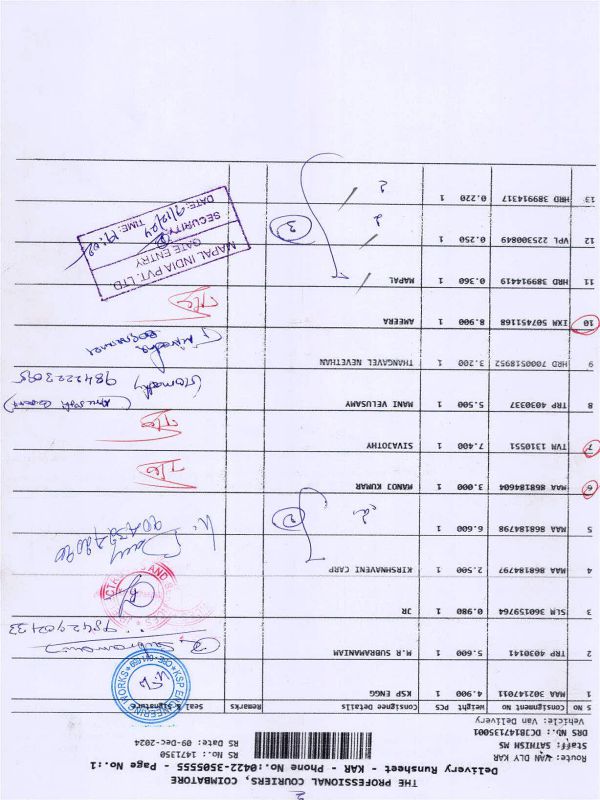 THE PROFESSIONAL COURIERS, COIMBATORE
Delivery Runsheet - KAR - Phone No.:0422-3505555 - Page No.:1
Route: VAN DLY KAR
Staff: SATHISH MS
DRS NO.: DCB1471350O1
Vehicle: Van Delivery
RS No.: 1471350
RS Date: 09-Dec-2024
S NO Consignment No Weight PCS Consignee Details Remarks Seal & Signature
1 MAA 302147011 4.900 1 KSP ENGG
KSP ENGINEERING WORKS
2 TRP 4030141 5.600 1 M.R SUBRAMANIAM
Subramani
9842902433
3 SLM 360159764 0.980 1 JR
4 MAA 868184797 2.500 1 KIRSHNAVENI CARP
5 MAA 868184798 6.600 1
2
6 MAA 868184604 3.000 1 MANOJ KUMAR
7 TVM 1310551 7.400 1 SIVAJOTHY
8 TRP 4030337 5.500 1 MANI VELUSAMY
Gomathy
9842223095
9 HRD 7000518952 3.200 1 THANGAVEL NEVETHAN
10 IXM 507451168 8.900 1 AMEERA
11 HRD 389914419 0.360 1 MAPAL
12 VPL 225300849 0.250 1
3
13 HRD 389914317 0.220 1
MAPAL INDIA PVT. LTD
GATE ENTRY
SECURITY
DATE: 9/12/24 TIME: